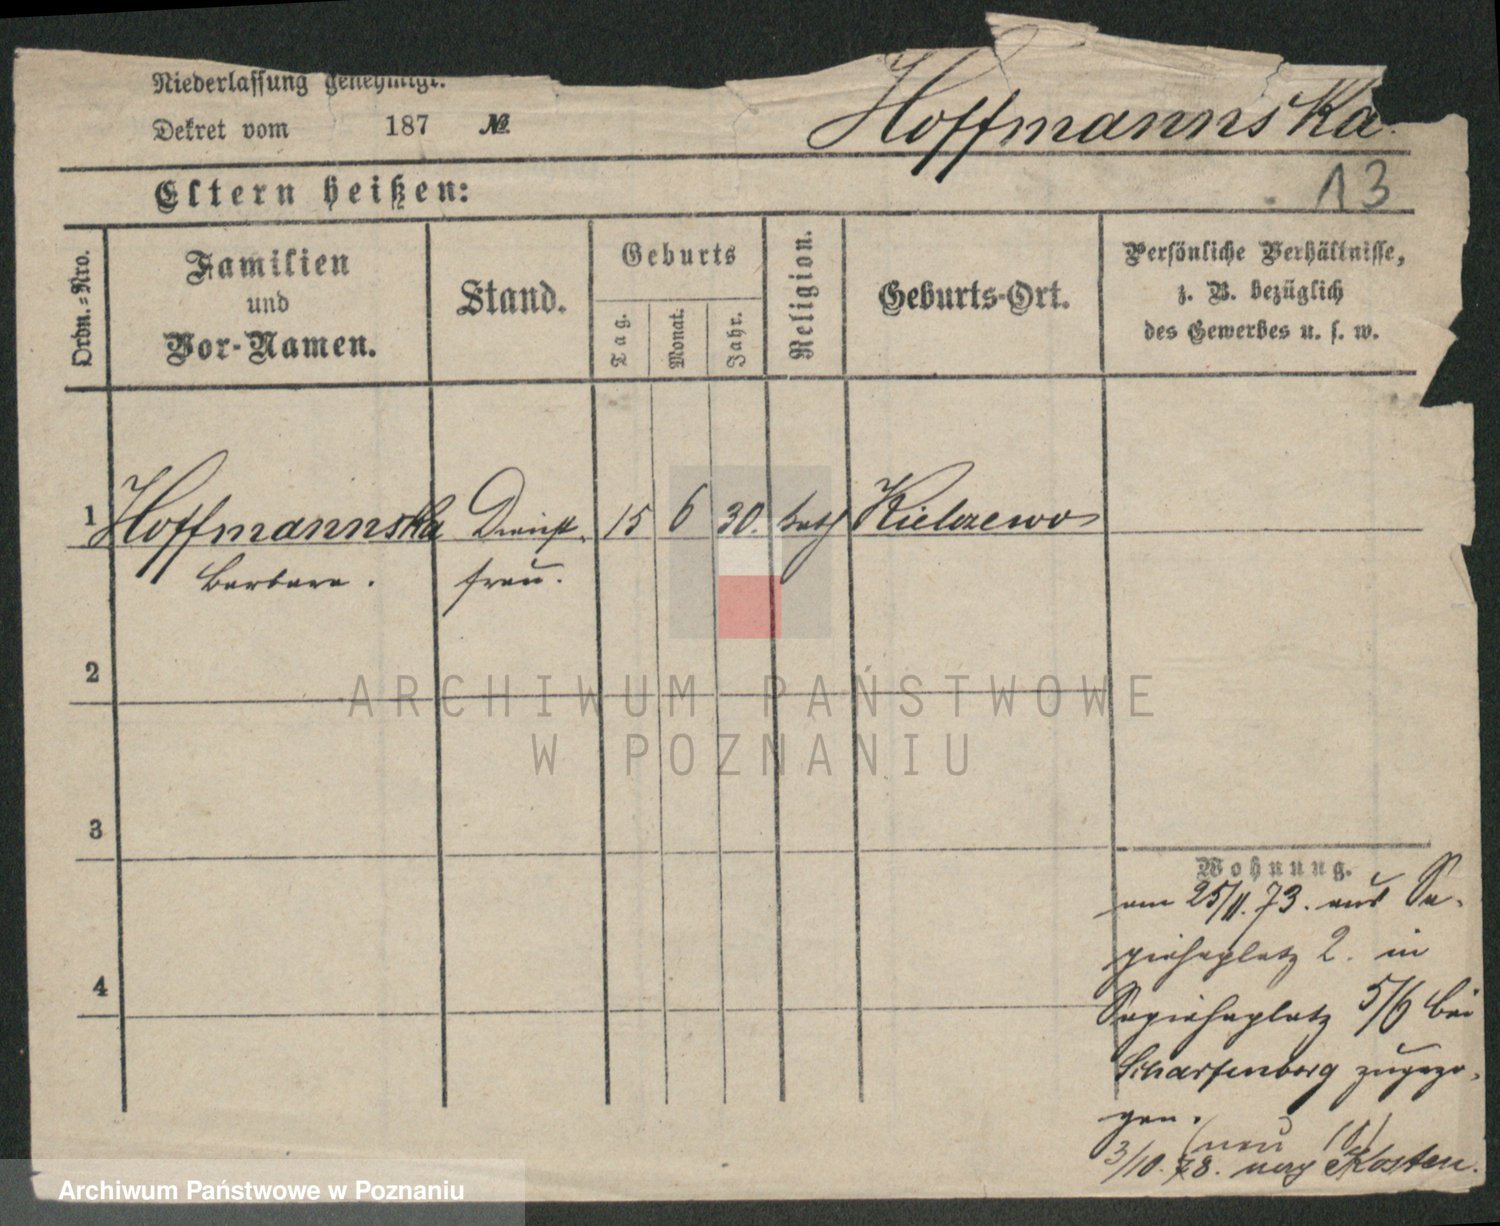 Niederlassung genehmigt.
Dekret vom 187 №
Hoffmannska.
Eltern heißen:
13
Ordn.-Nro.
Familien
und
Vor-Namen.
Stand.
Geburts
Tag.
Monat.
Jahr.
Religion.
Geburts-Ort.
Persönliche Verhältnisse,
z. B. bezüglich
des Gewerbes u. s. w.
1 Hoffmannska Dienst 15 6 30. kath Kielczewo
Barbara. frau.
2
ARCHIWUM PAŃSTWOWE
W POZNANIU
3
Wohnung.
am 25/11. 73. aus Sa-
piehaplatz 2. in
4
Sapiehaplatz 5/6 bei
Scharfenberg zugezo-
gen.
(neu 15)
3/10. 78. nach Kosten.
Archiwum Państwowe w Poznaniu